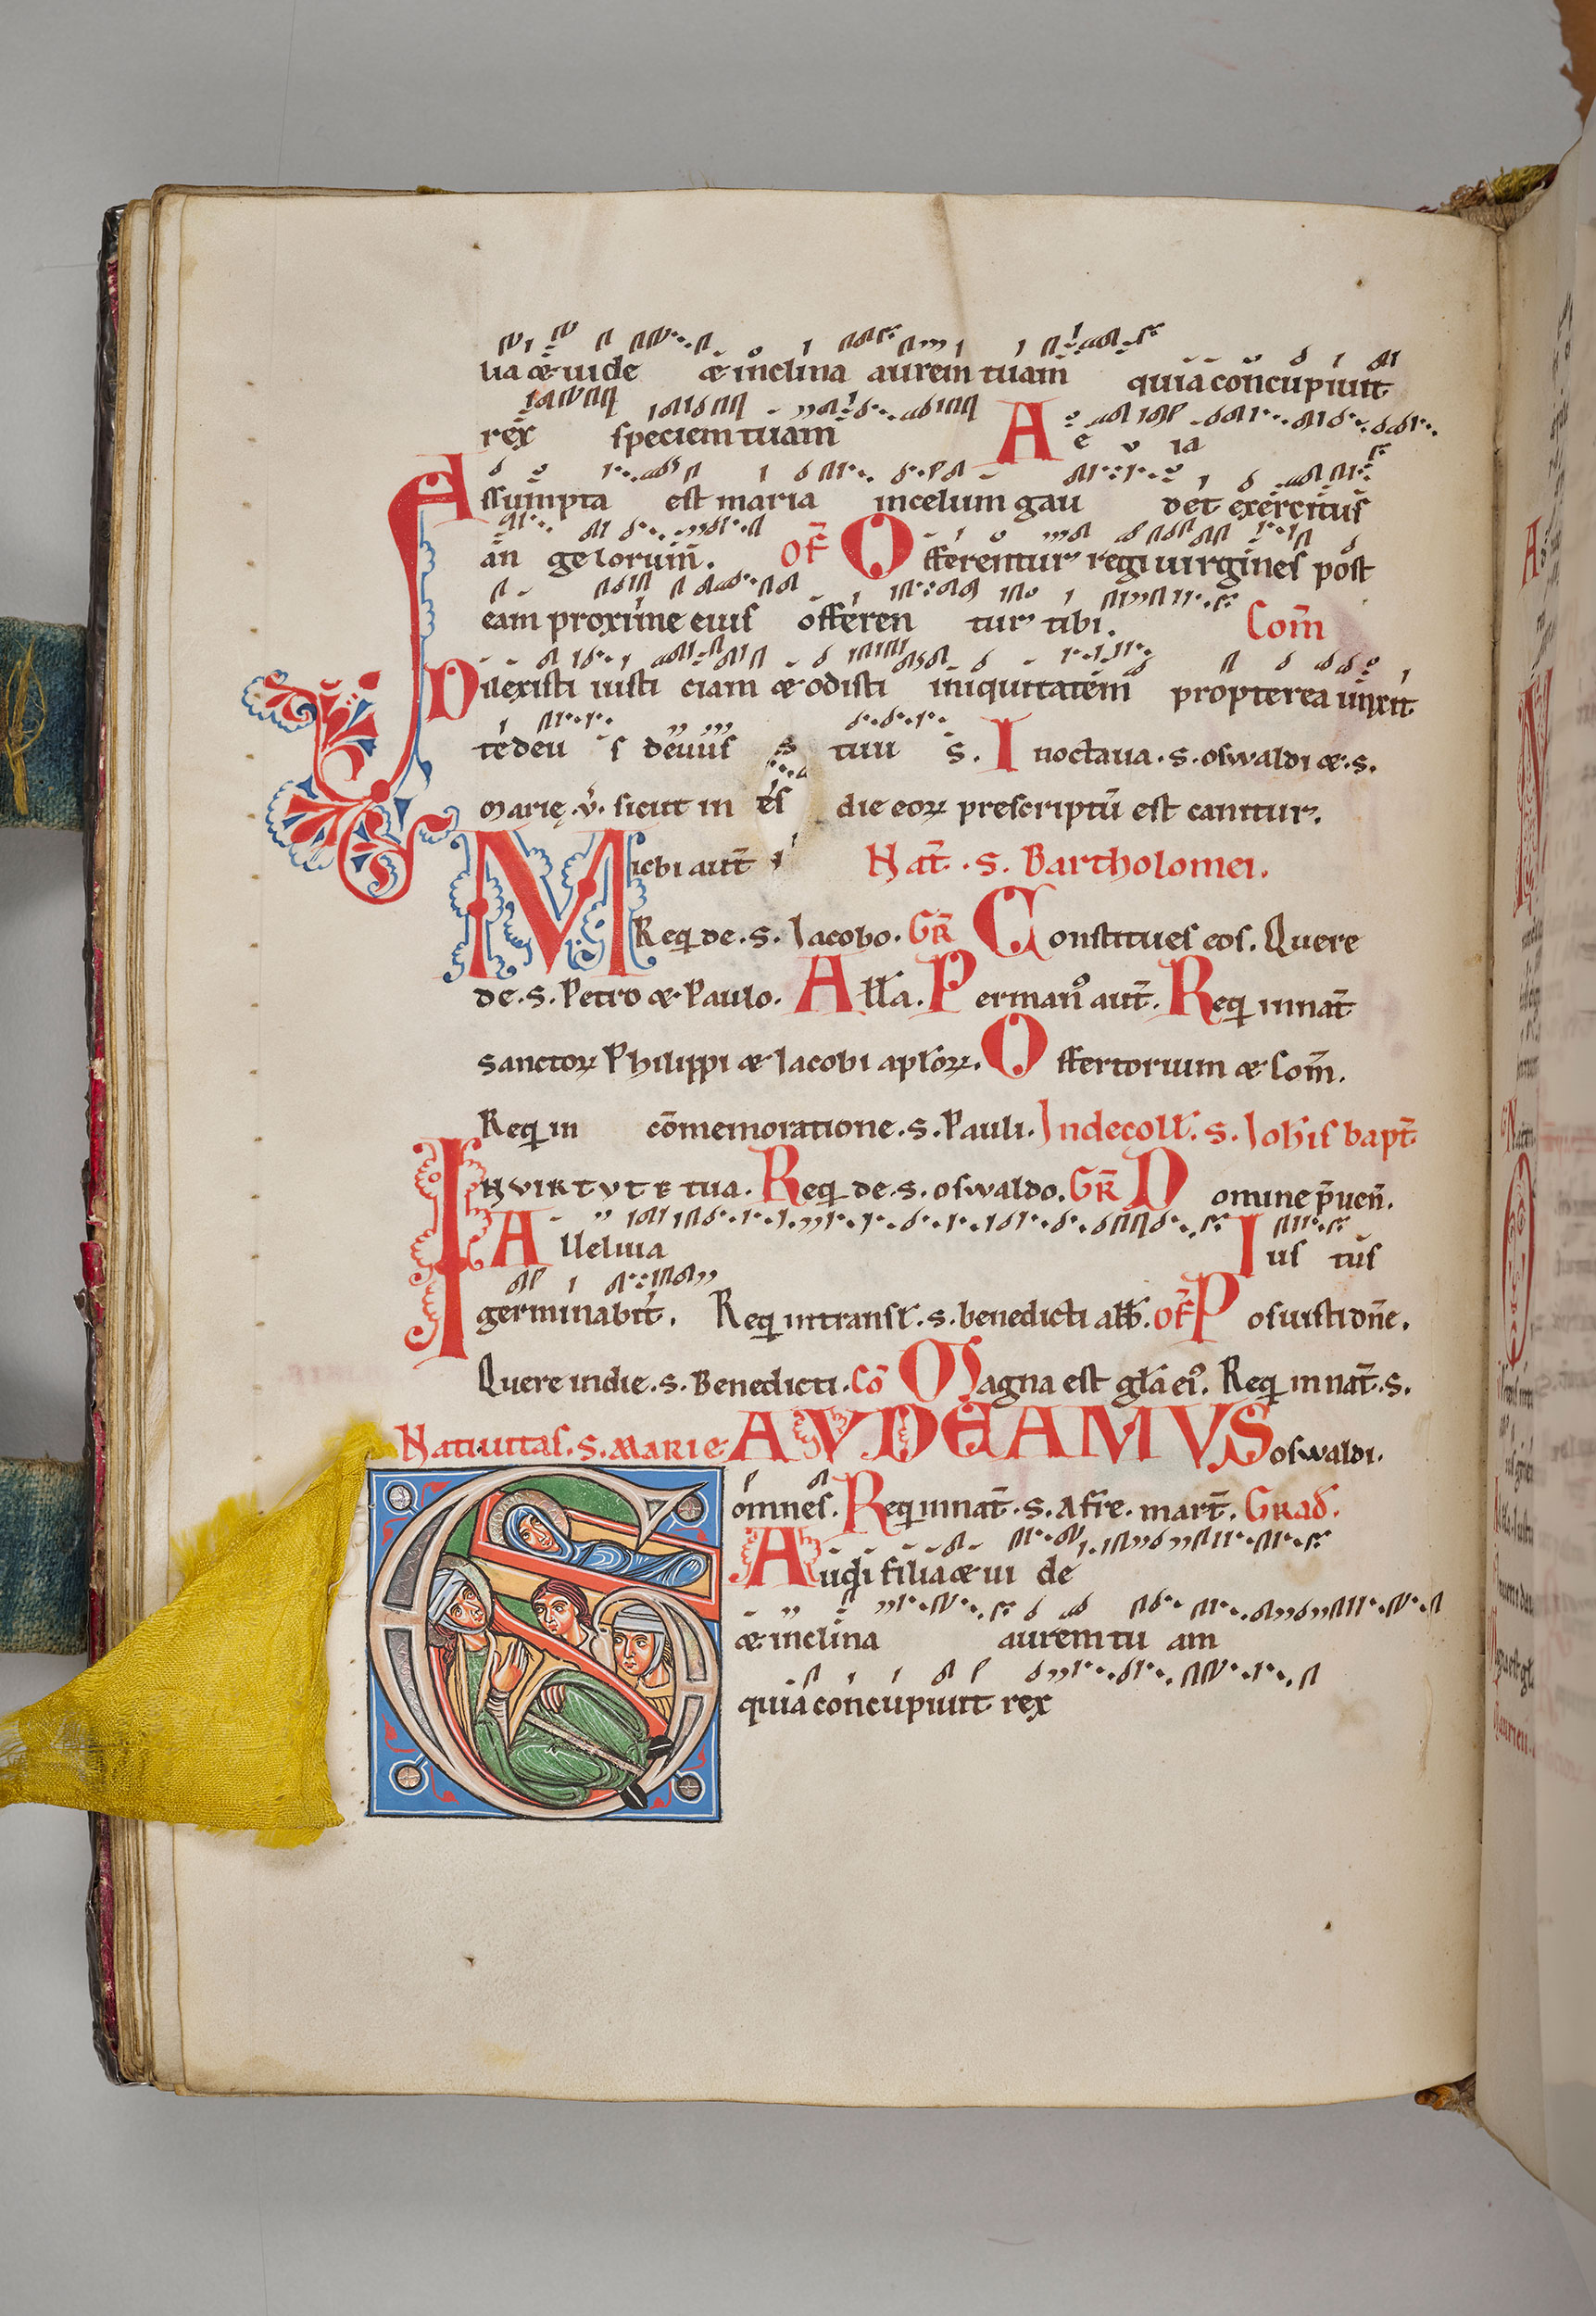 lia & uide & inclina aurem tuam quia concupiuit
rex speciem tuam A e v ia
Assumpta est maria incelum gau det exercitus
an ge lorum. OF Offerentur regi uirgines post
eam proxime eius offeren tur tibi. Com̄
Dilexisti iusti ciam & odisti iniquitatem propterea unxit
te deu s deuus s tuu s. I noctaua. s. oswaldi &. s.
Marię. v̄. sicut in es die eoꝝ prescriptū est canitur.
Michi aut̄ Nat̄. s. Bartholomei.
Req̄ de. s. Iacobo. GR̄ Constitues eos. Quere
de. s. Petro & Paulo. All̄a. Permanꝰ aut̄. Req̄ innat̄
sanctoꝝ Philippi & Iacobi apl̄oꝝ. Offertorium & Com̄.
Req̄ in cōmemoratione. s. Pauli. Indecoll̄. s. Ioh̄is bapt̄
IN VIRTVTE tua. Req̄ de. s. oswaldo. GR̄ Domine p̄uen̄.
Alleluia Ius tus
germinabit. Req̄ intransl̄. s. benedicti abb̄. OF Posuisti dn̄e.
Quere indie. s. Benedicti. Cō Magna est gl̄a eiꝰ. Req̄ innat̄. s.
Natiuitas. s. MARIE GAVDEAMVS oswaldi.
omnes. Req̄ innat̄. s. Afre. mart̄. Grad̄.
Audi filia & ui de
& inclina aurem tu am
quia concupiuit rex